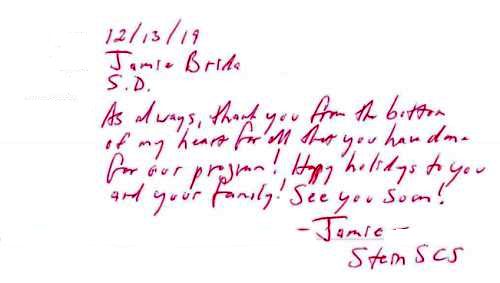 12/13/19
Jamie Brida
S.D.
As always, thank you from the bottom
of my heart for all that you have done
for our program! Happy holidys to you
and your family! See you soon!
- Jamie -
Stein SCS